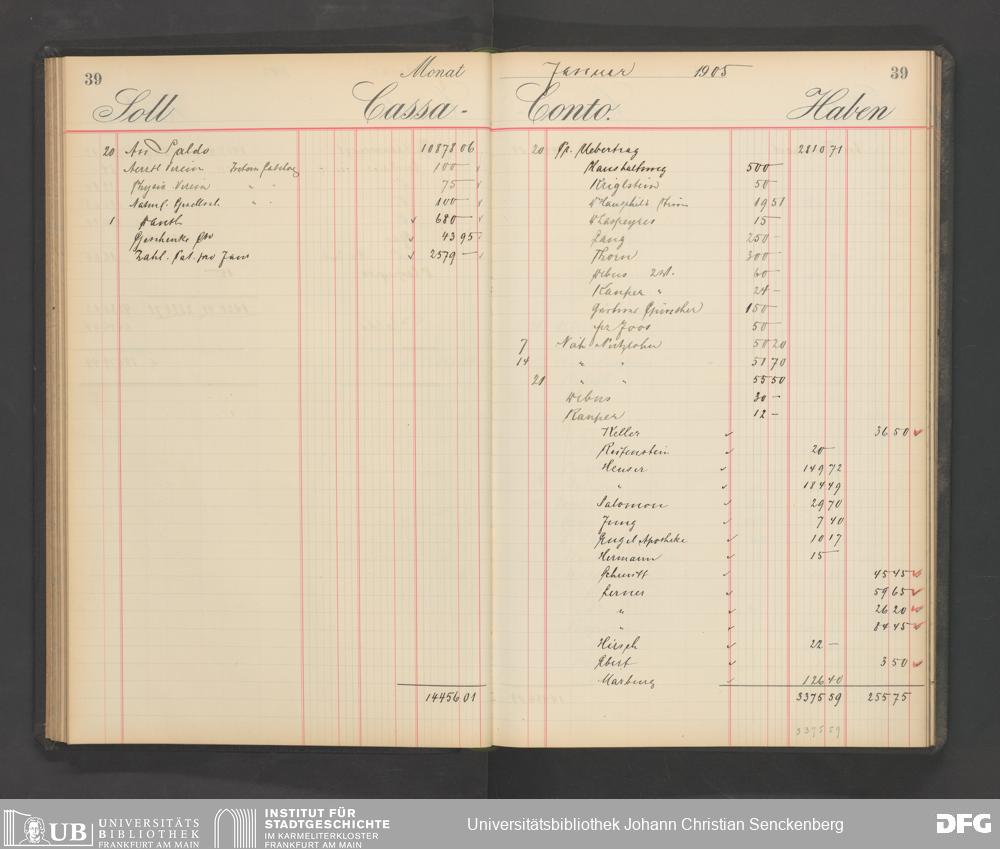 39
Monat
Soll
Cassa-
20 An Saldo 10878 06
Aerztl Verein 100 —
Physis Verein " " 75 —
Naturf. Gesellsch " " 100 —
1 680 —
Geschenke 43 95
Zahl. Pat. pro Jan 2579 —
14456 01
Januar 1905
39
Conto.
Haben
20 Uebertrag 2810 71
500 —
50 —
19 51
15 —
Lang 250 —
Thorn 300 —
Wibus 60 —
Kanper " 24 —
150 —
Joos 50 —
7 Näh 50 20
14 " " 51 70
21 " " 55 50
Wibus 30 —
Kanper 12 —
Keller 36 50
Reifenstein 20 —
Heuser 149 72
" 184 49
Salomon 29 70
Jung 7 40
Engel Apotheke 10 17
Hermann 15 —
Schmitt 45 45
Lerner 59 65
" 26 20
" 84 45
Hirsch 22 —
Ebert 3 50
Marburg 126 40
3375 59 255 75
3375 59
UB UNIVERSITÄTS
BIBLIOTHEK
FRANKFURT AM MAIN
INSTITUT FÜR
STADTGESCHICHTE
IM KARMELITERKLOSTER
FRANKFURT AM MAIN
Universitätsbibliothek Johann Christian Senckenberg
DFG